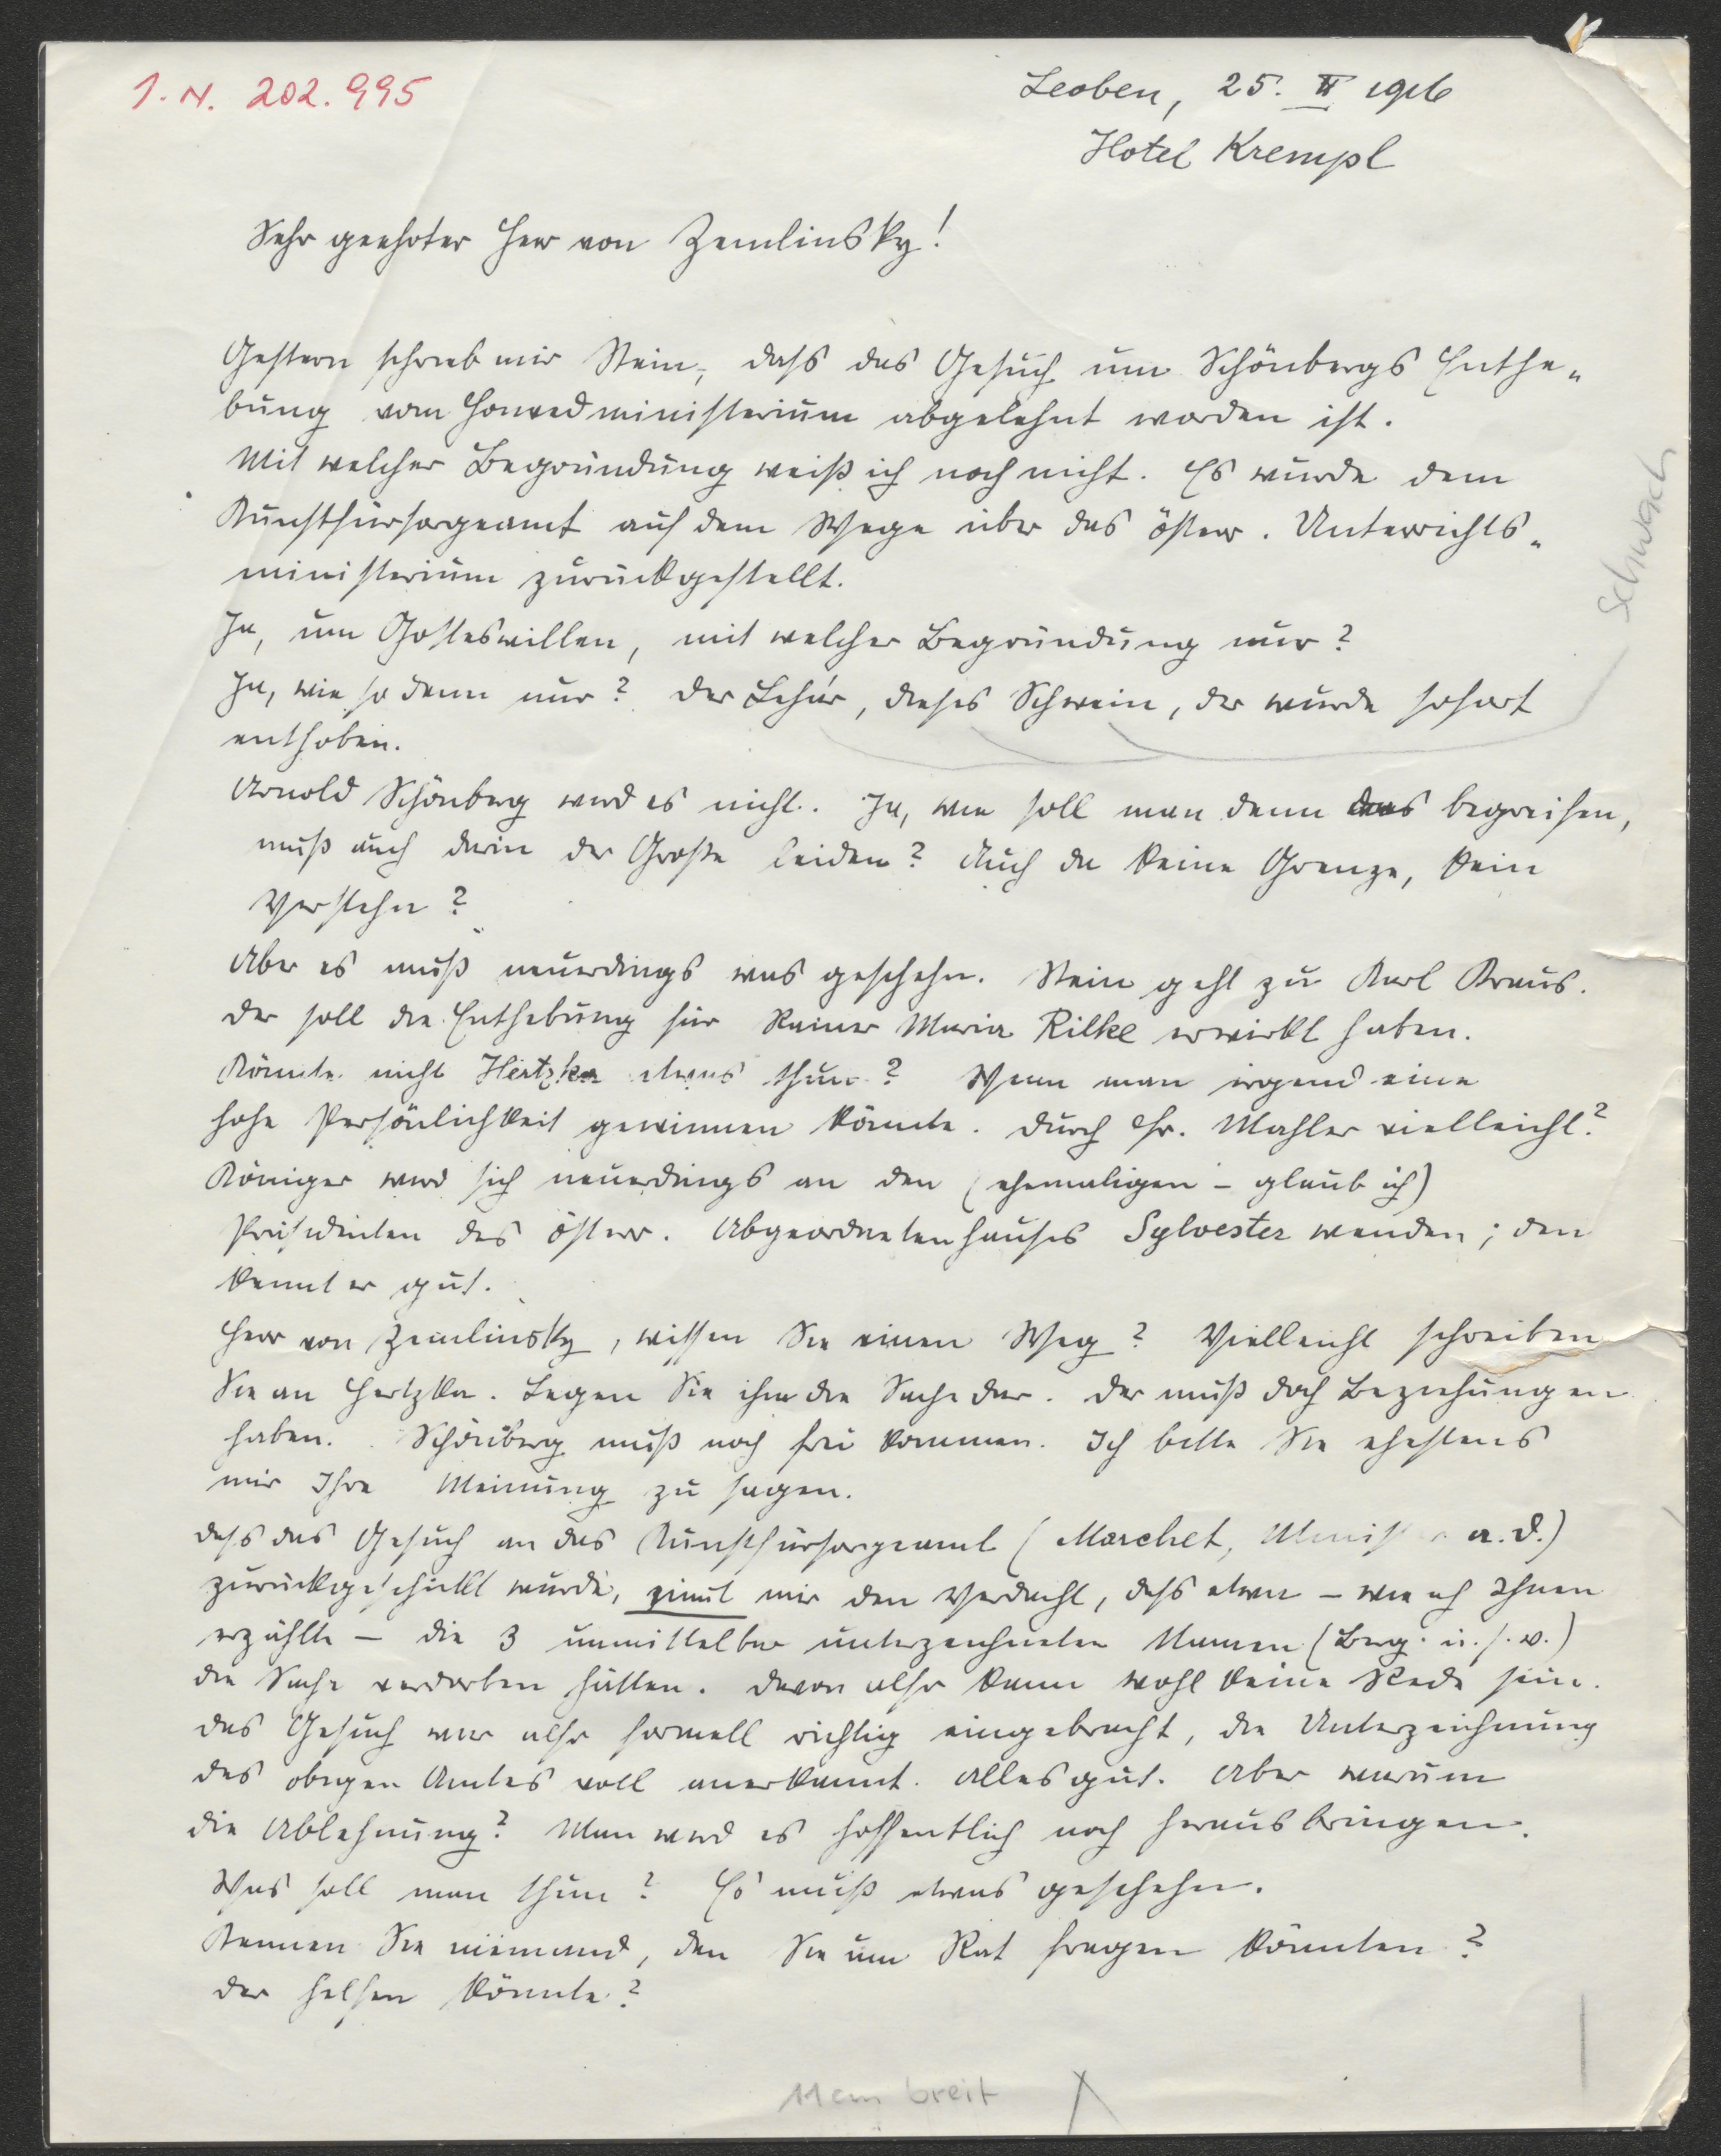 I. N. 202.995
Leoben, 25. II 1916
Hotel Krempl
Sehr geehrter Herr von Zemlinsky!
Gestern schrieb mir Stein, dass das Gesuch um Schönbergs Enthe-
bung vom Honvedministerium abgelehnt worden ist.
Mit welcher Begründung weiß ich noch nicht. Es wurde dem
Kunstfürsorgeamt auf dem Wege über das österr. Unterrichts-
ministerium zurückgestellt.
Ja, um Gotteswillen, mit welcher Begründung nur?
Ja, wie so denn nur? Der Lehár, dieses Schwein, der wurde sofort
enthoben.
Arnold Schönberg wird es nicht. Ja, wie soll man denn das begreifen,
muß auch darin der Große leiden? Auch da keine Grenze, kein
Verstehn?
Aber es muß neuerdings was geschehn. Stein geht zu Karl Kraus.
Der soll die Enthebung für Rainer Maria Rilke erwirkt haben.
Könnte nicht Hertzka etwas thun? Wenn man irgend eine
hohe Persönlichkeit gewinnen könnte. Durch Fr. Mahler vielleicht?
Königer wird sich neuerdings an den (ehemaligen - glaub ich)
Präsidenten des österr. Abgeordnetenhauses Sylvester wenden; den
kennt er gut.
Herr von Zemlinsky, wissen Sie einen Weg? Vielleicht schreiben
Sie an Hertzka. Legen Sie ihm die Sache dar. Der muß doch Beziehungen
haben. Schönberg muß noch frei kommen. Ich bitte Sie ehestens
mir Ihre Meinung zu sagen.
Dass das Gesuch an das Kunstfürsorgeamt (Marchet, Minister a. D.)
zurückgeschickt wurde, nimmt mir den Verdacht, dass etwa - wie ich Ihnen
erzählte - die 3 unmittelbar unterzeichneten Namen (Berg u. s. w.)
die Sache verdorben hätten. Davon also kann wohl keine Rede sein.
Das Gesuch war also formell richtig eingebracht, die Unterzeichnung
des obigen Amtes voll anerkannt. Alles gut. Aber warum
die Ablehnung? Man wird es hoffentlich noch herausbringen.
Was soll man thun? Es muß etwas geschehn.
Kennen Sie niemand, den Sie um Rat fragen könnten?
der helfen könnte?
Schwach
11 cm breit